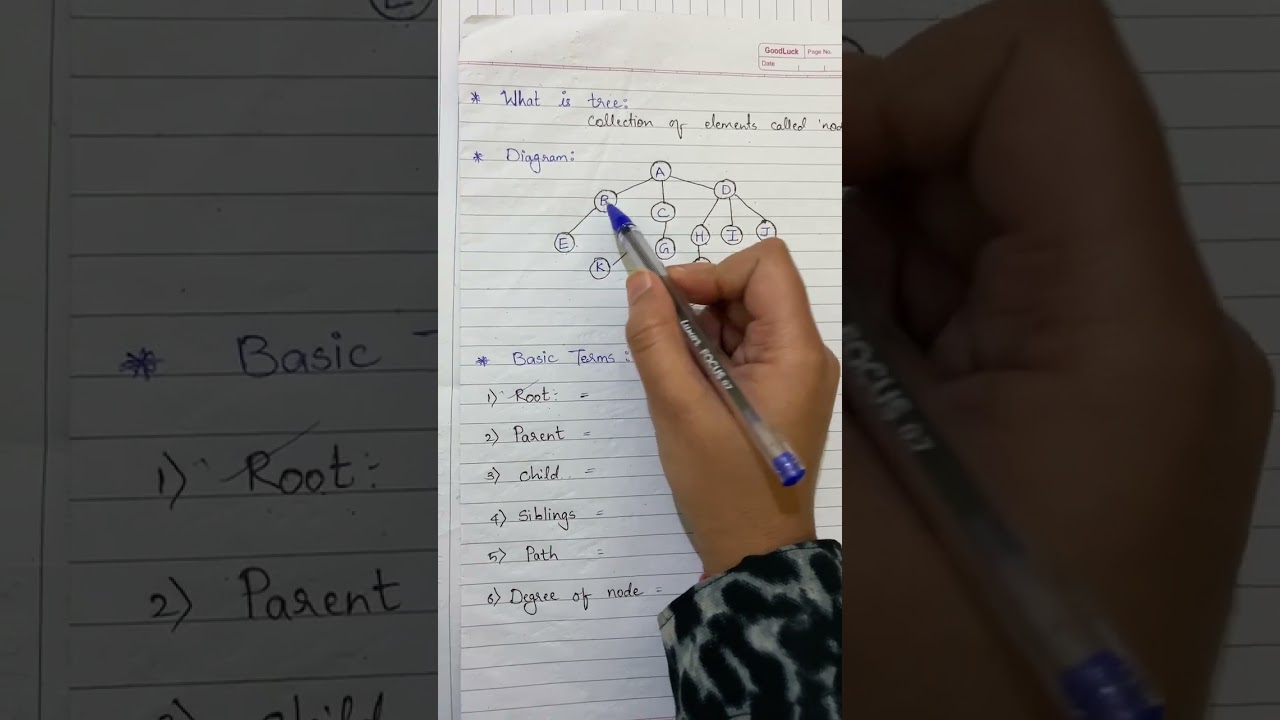 GoodLuck Page No.
Date
* What is tree:
collection of elements called 'nod
* Diagram:
A
B C D
E G H I J
K
* Basic Terms:
1) Root: =
2) Parent =
3) child =
4) Siblings =
5) Path =
6) Degree of node =
LUXOR FOCUS 07
* Basic
1) Root:
2) Parent
child
FOCUS 07